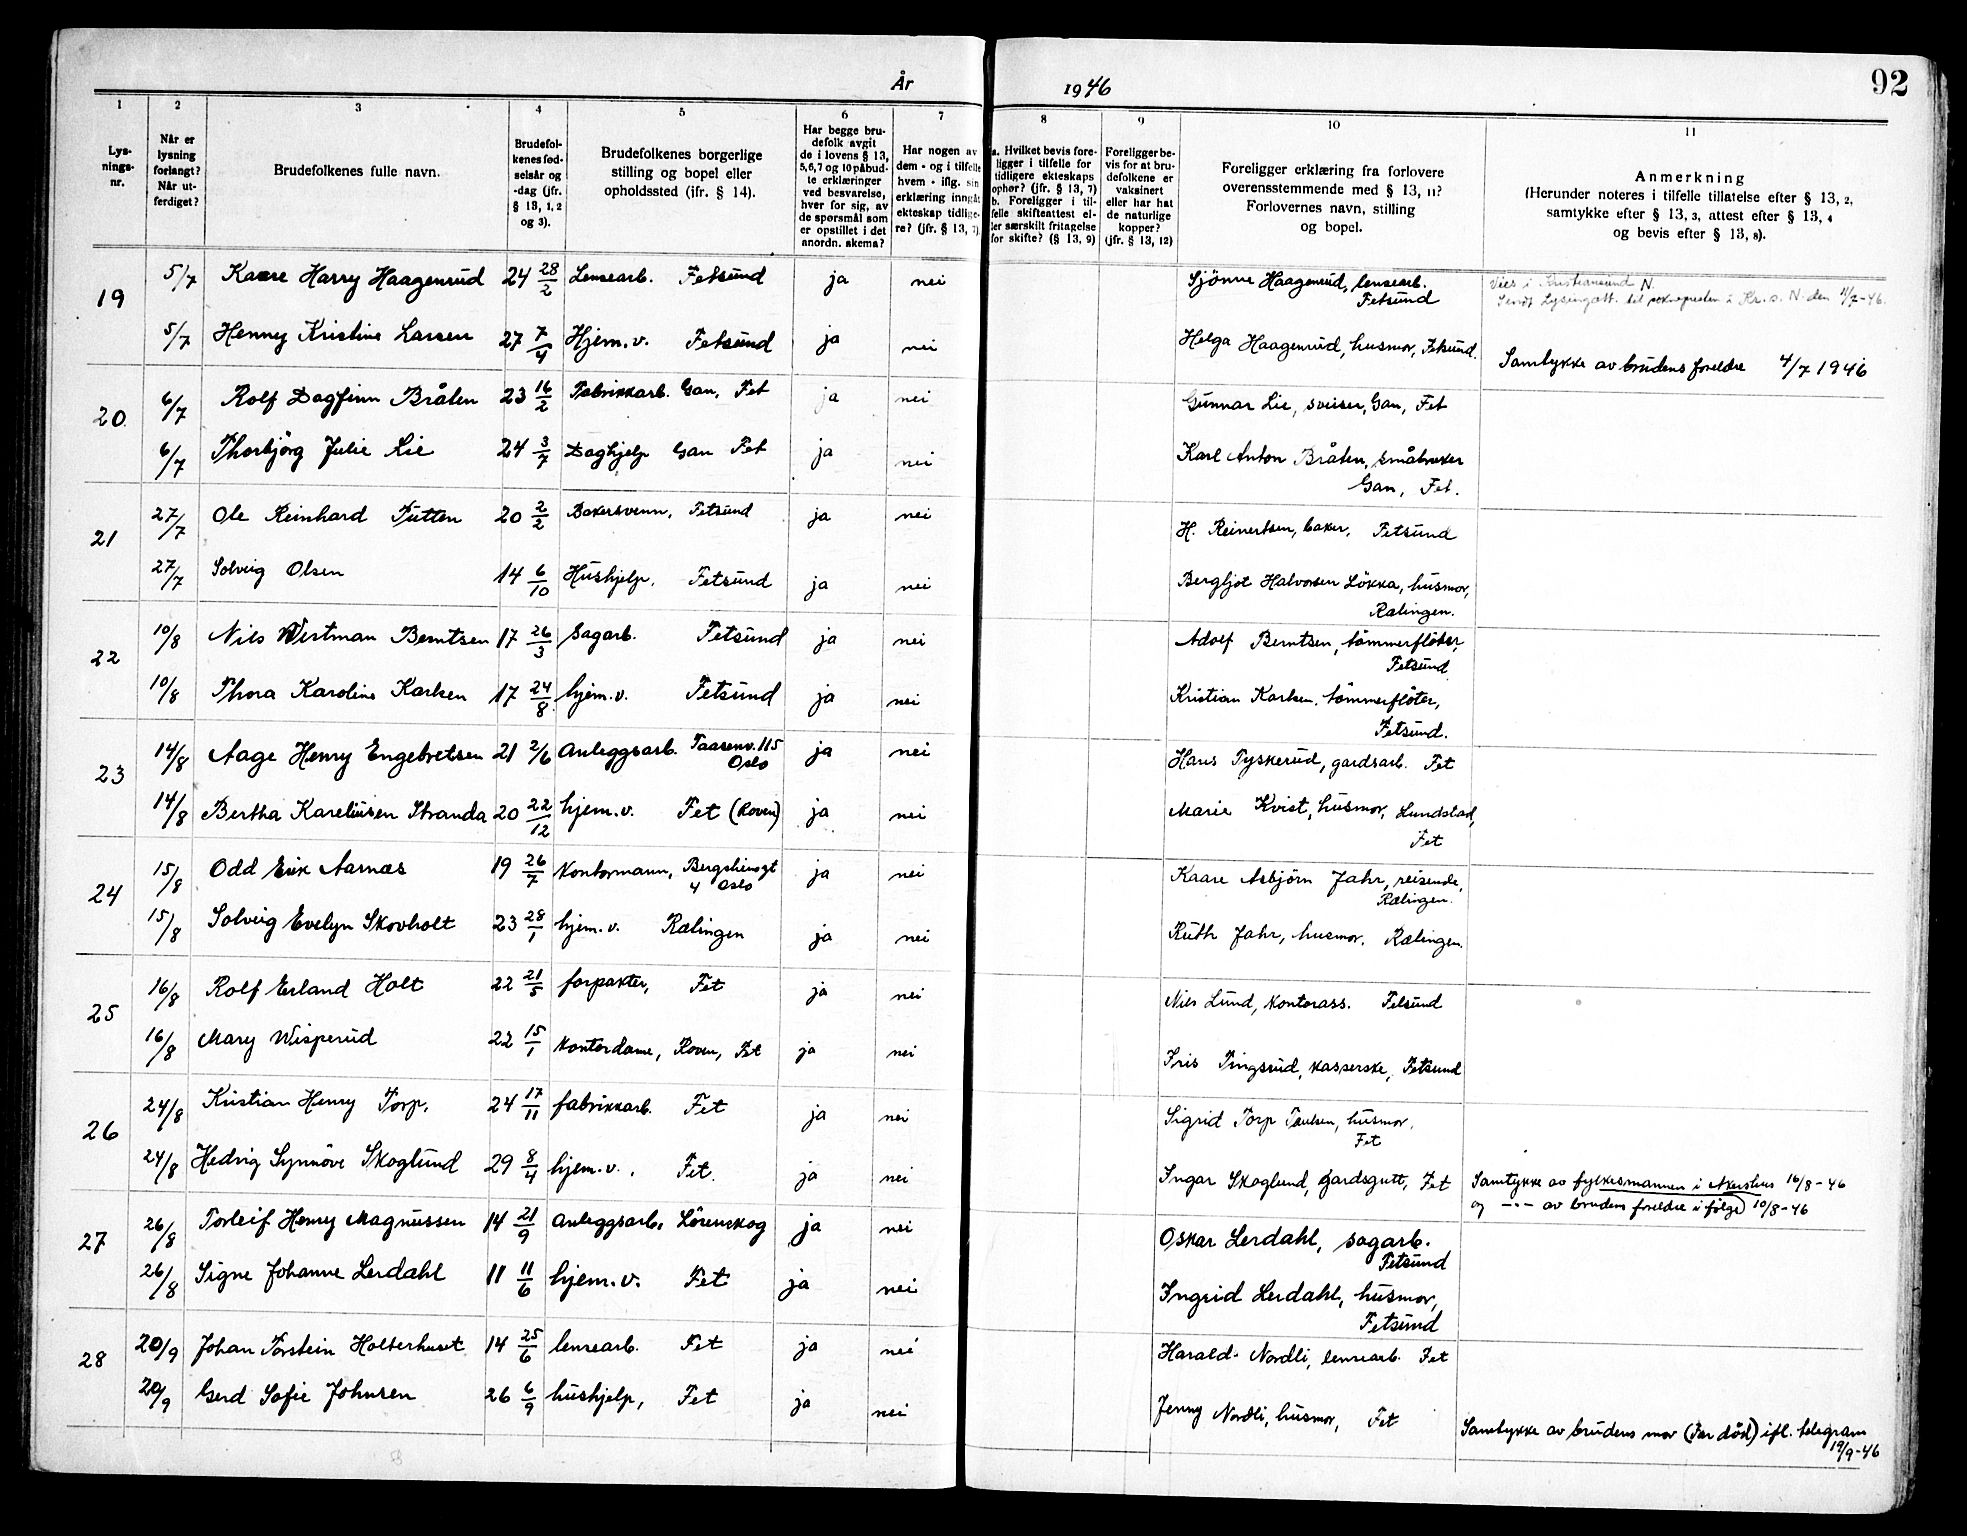 År 1946 92
1 2 3 4 5 6 7 8 9 10 11
Lys-
nings-
nr.
Når er
lysning
forlangt?
Når ut-
ferdiget?
Brudefolkenes fulle navn.
Brudefol-
kenes fød-
selsår og
-dag (jfr.
§ 13, 1, 2
og 3).
Brudefolkenes borgerlige
stilling og bopel eller
opholdssted (ifr. § 14).
Har begge bru-
defolk avgit
de i lovens § 13,
5, 6, 7 og 10 påbud-
te erklæringer
ved besvarelse,
hver for sig, av
de spørsmål som
er opstillet i det
anordn. skema?
Har nogen av
dem - og i tilfelle
hvem - iflg. sin
erklæring inngåt
ekteskap tidlige-
re? (jfr. § 13, 7)
a. Hvilket bevis fore-
ligger i tilfelle for
tidligere ekteskaps
ophør? (jfr. § 13, 7)
b. Foreligger i til-
felle skifteattest el-
ler særskilt fritagelse
for skifte? (§ 13, 9)
Foreligger be-
vis for at bru-
defolkene er
vaksinert
eller har hat
de naturlige
kopper?
(jfr. § 13, 12)
Foreligger erklæring fra forlovere
overensstemmende med § 13, 11?
Forlovernes navn, stilling
og bopel.
Anmerkning
(Herunder noteres i tilfelle tillatelse efter § 13, 2,
samtykke efter § 13, 3, attest efter § 13, 4
og bevis efter § 13, 8).
19 5/7 Kaare Harry Haagenrud 24 28/2 Lensearb. Fetsund ja nei Sjönne Haagenrud, lensearb.
Fetsund
Vies i Kristiansund N.
Sendt Lysingatt. til soknepresten i Kr. s. N. den 11/7-46.
5/7 Henny Kristine Larsen 27 7/4 Hjem.v. Fetsund ja nei Helga Haagenrud, husmor, Fetsund. Samtykke av brudens foreldre 4/7 1946
20. 6/7 Rolf Dagfinn Bråten 23 16/2 Fabrikkarb. Gan, Fet ja nei Gunnar Lie, sveiser, Gan, Fet
6/7 Thorbjörg Julie Lie 24 3/7 Daghjelp Gan Fet ja nei Karl Anton Bråten, småbruker
Gan, Fet.
21 27/7 Ole Reinhard Tutten 20 2/2 Bakersvenn, Fetsund ja nei H. Reinertsen, baker, Fetsund
27/7 Solveig Olsen 14 6/10 Hushjelp, Fetsund ja nei Bergljot Halvorsen Lökka, husmor,
Rælingen.
22 10/8 Nils Wertman Berntsen 17 26/3 Sagarb. Fetsund ja nei Adolf Berntsen, tömmerflöter,
Fetsund
10/8 Thora Karoline Karlsen 17 24/8 hjem.v. Fetsund ja nei Kristian Karlsen, tömmerflöter,
Fetsund.
23 14/8 Aage Henry Engebretsen 21 2/6 Anleggsarb. Taasenv. 115
Oslo ja nei Hans Tyskerud, gardsarb. Fet
14/8 Bertha Kareliusen Stranda 20 22/12 hjem.v. Fet (Roven) ja nei Marie Kvist, husmor, Lundstad,
Fet
24 15/8 Odd Erik Aarnæs 19 26/7 Kontormann, Bergsliensgt
4 Oslo ja nei Kaare Asbjörn Jahr, reisende,
Rælingen.
15/8 Solveig Evelyn Skovholt 23 28/1 hjem.v. Rælingen ja nei Ruth Jahr, husmor, Rælingen.
25 16/8 Rolf Erland Holt 22 21/5 forpakter, Fet ja nei Nils Lund, kontorass. Fetsund
16/8 Mary Wisperud 22 15/1 kontordame, Roven, Fet ja nei Iris Tingsrud, kasserske, Fetsund
26 24/8 Kristian Henry Torp. 24 17/11 fabrikkarb. Fet ja nei Sigrid Torp Paulsen, husmor,
Fet
24/8 Hedvig Synnöve Skoglund 29 8/4 hjem.v. Fet. ja nei Ingar Skoglund, gardsgutt, Fet Samtykke av fylkesmannen i Akershus 16/8-46
og -"- av brudens foreldre i følge 10/8-46
27 26/8 Torleif Henry Magnussen 14 21/9 anleggsarb. Lörenskog ja nei Oskar Lerdahl, sagarb.
Fetsund
26/8 Signe Johanne Lerdahl 11 11/6 hjem.v. Fet ja nei Ingrid Lerdahl, husmor,
Fetsund
28 20/9 Johan Torstein Holterhuset 14 25/6 lensearb. Fet ja nei Harald Nordli, lensearb. Fet
20/9 Gerd Sofie Johnsen 26 6/9 hushjelp, Fet ja nei Jenny Nordli, husmor, Fet Samtykke av brudens mor (Far död) ifl. telegram
19/9-46